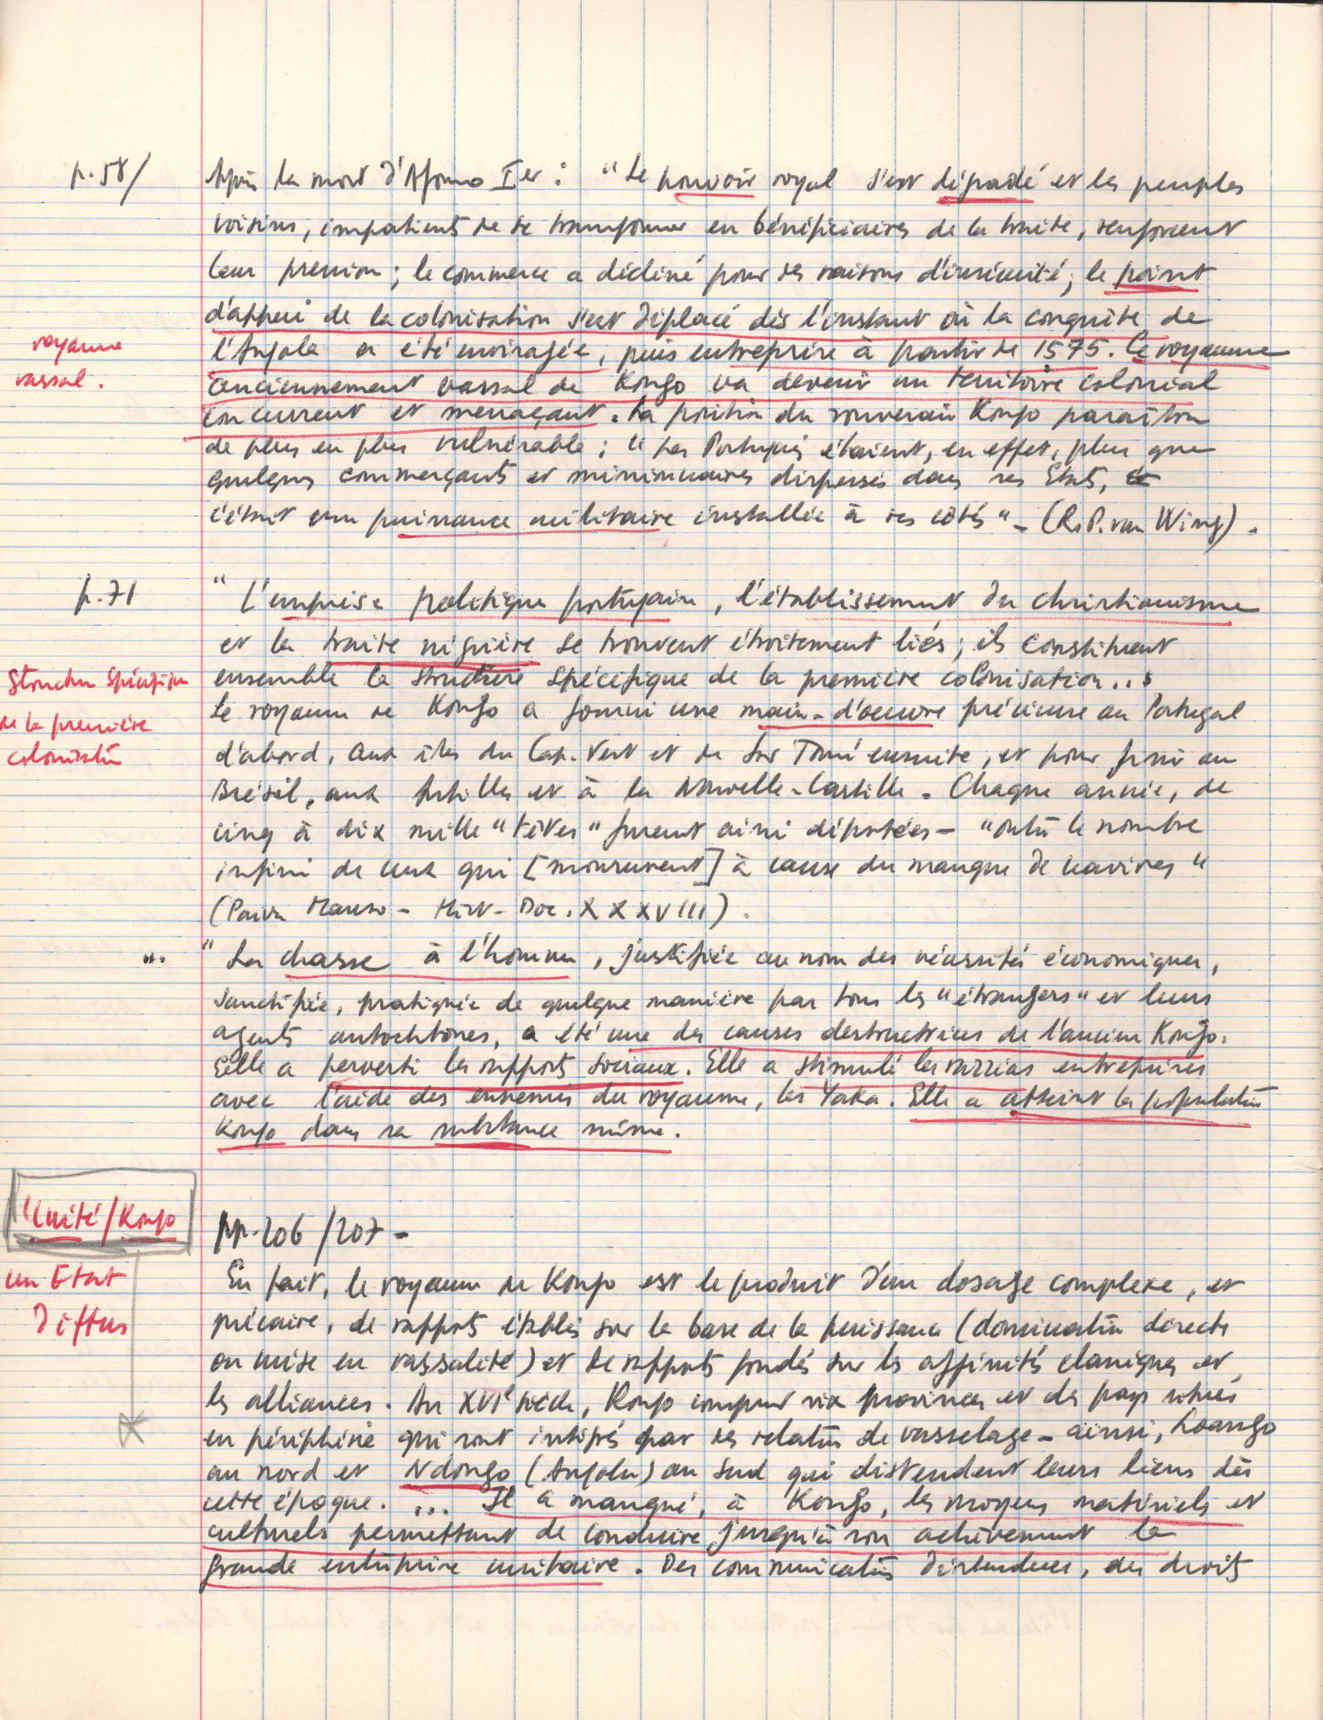 p.58/
Après la mort d'Afonso Ier : "Le pouvoir royal s'est dégradé et les peuples
voisins, impatients de se transformer en bénéficiaires de la traite, renforcent
leur pression ; le commerce a décliné pour des raisons d'insécurité ; le point
d'appui de la colonisation s'est déplacé dès l'instant où la conquête de
royaume
vassal.
l'Angola a été envisagée, puis entreprise à partir de 1575. Ce royaume
anciennement vassal de Kongo va devenir un territoire colonial
concurrent et menaçant. La position du souverain Kongo paraît
de plus en plus vulnérable ; " Les Portugais étaient, en effet, plus que
quelques commerçants et missionnaires dispersés dans ses Etats,
c'était une puissance militaire installée à ses côtés" - (R.P. van Wing) .
p.71
" L'emprise politique portugaise, l'établissement du christianisme
et la traite négrière se trouvent étroitement liés ; ils constituent
Structure spécifique
de la première
colonisation
ensemble la structure spécifique de la première colonisation...
Le royaume de Kongo a fourni une main-d'oeuvre précieuse au Portugal
d'abord, aux îles du Cap-Vert et de São Tomé ensuite, et pour finir au
Brésil, aux Antilles et à la Nouvelle-Castille. Chaque année, de
cinq à dix mille "têtes" furent ainsi déportées - "outre le nombre
infini de ceux qui [moururent] à cause du manque de navires "
(Paiva Manso - Hist - Doc. XXXVIII) .
"..
" La chasse à l'homme, justifiée au nom des nécessités économiques,
sanctifiée, pratiquée de quelque manière par tous les "étrangers" et leurs
agents autochtones, a été une des causes destructrices de l'ancien Kongo.
Elle a perverti les rapports sociaux. Elle a stimulé les razzias entreprises
avec l'aide des ennemis du royaume, les Yaka. Elle a atteint la population
Kongo dans sa substance même.
Unité/Kongo
un Etat
Diffus
pp.206/207 -
En fait, le royaume de Kongo est le produit d'un dosage complexe, et
précaire, de rapports établis sur la base de la puissance (domination directe
ou mise en vassalité) et de rapports fondés sur les affinités claniques et
les alliances. Au XVIe siècle, Kongo comprend six provinces et des pays situés
en périphérie qui sont intégrés par des relations de vasselage - ainsi, Loango
au nord et Ndongo (Angola) au sud qui distendent leurs liens dès
cette époque. ... Il a manqué, à Kongo, les moyens matériels et
culturels permettant de conduire jusqu'à son achèvement la
grande entreprise unitaire. Des communications distendues, des droits